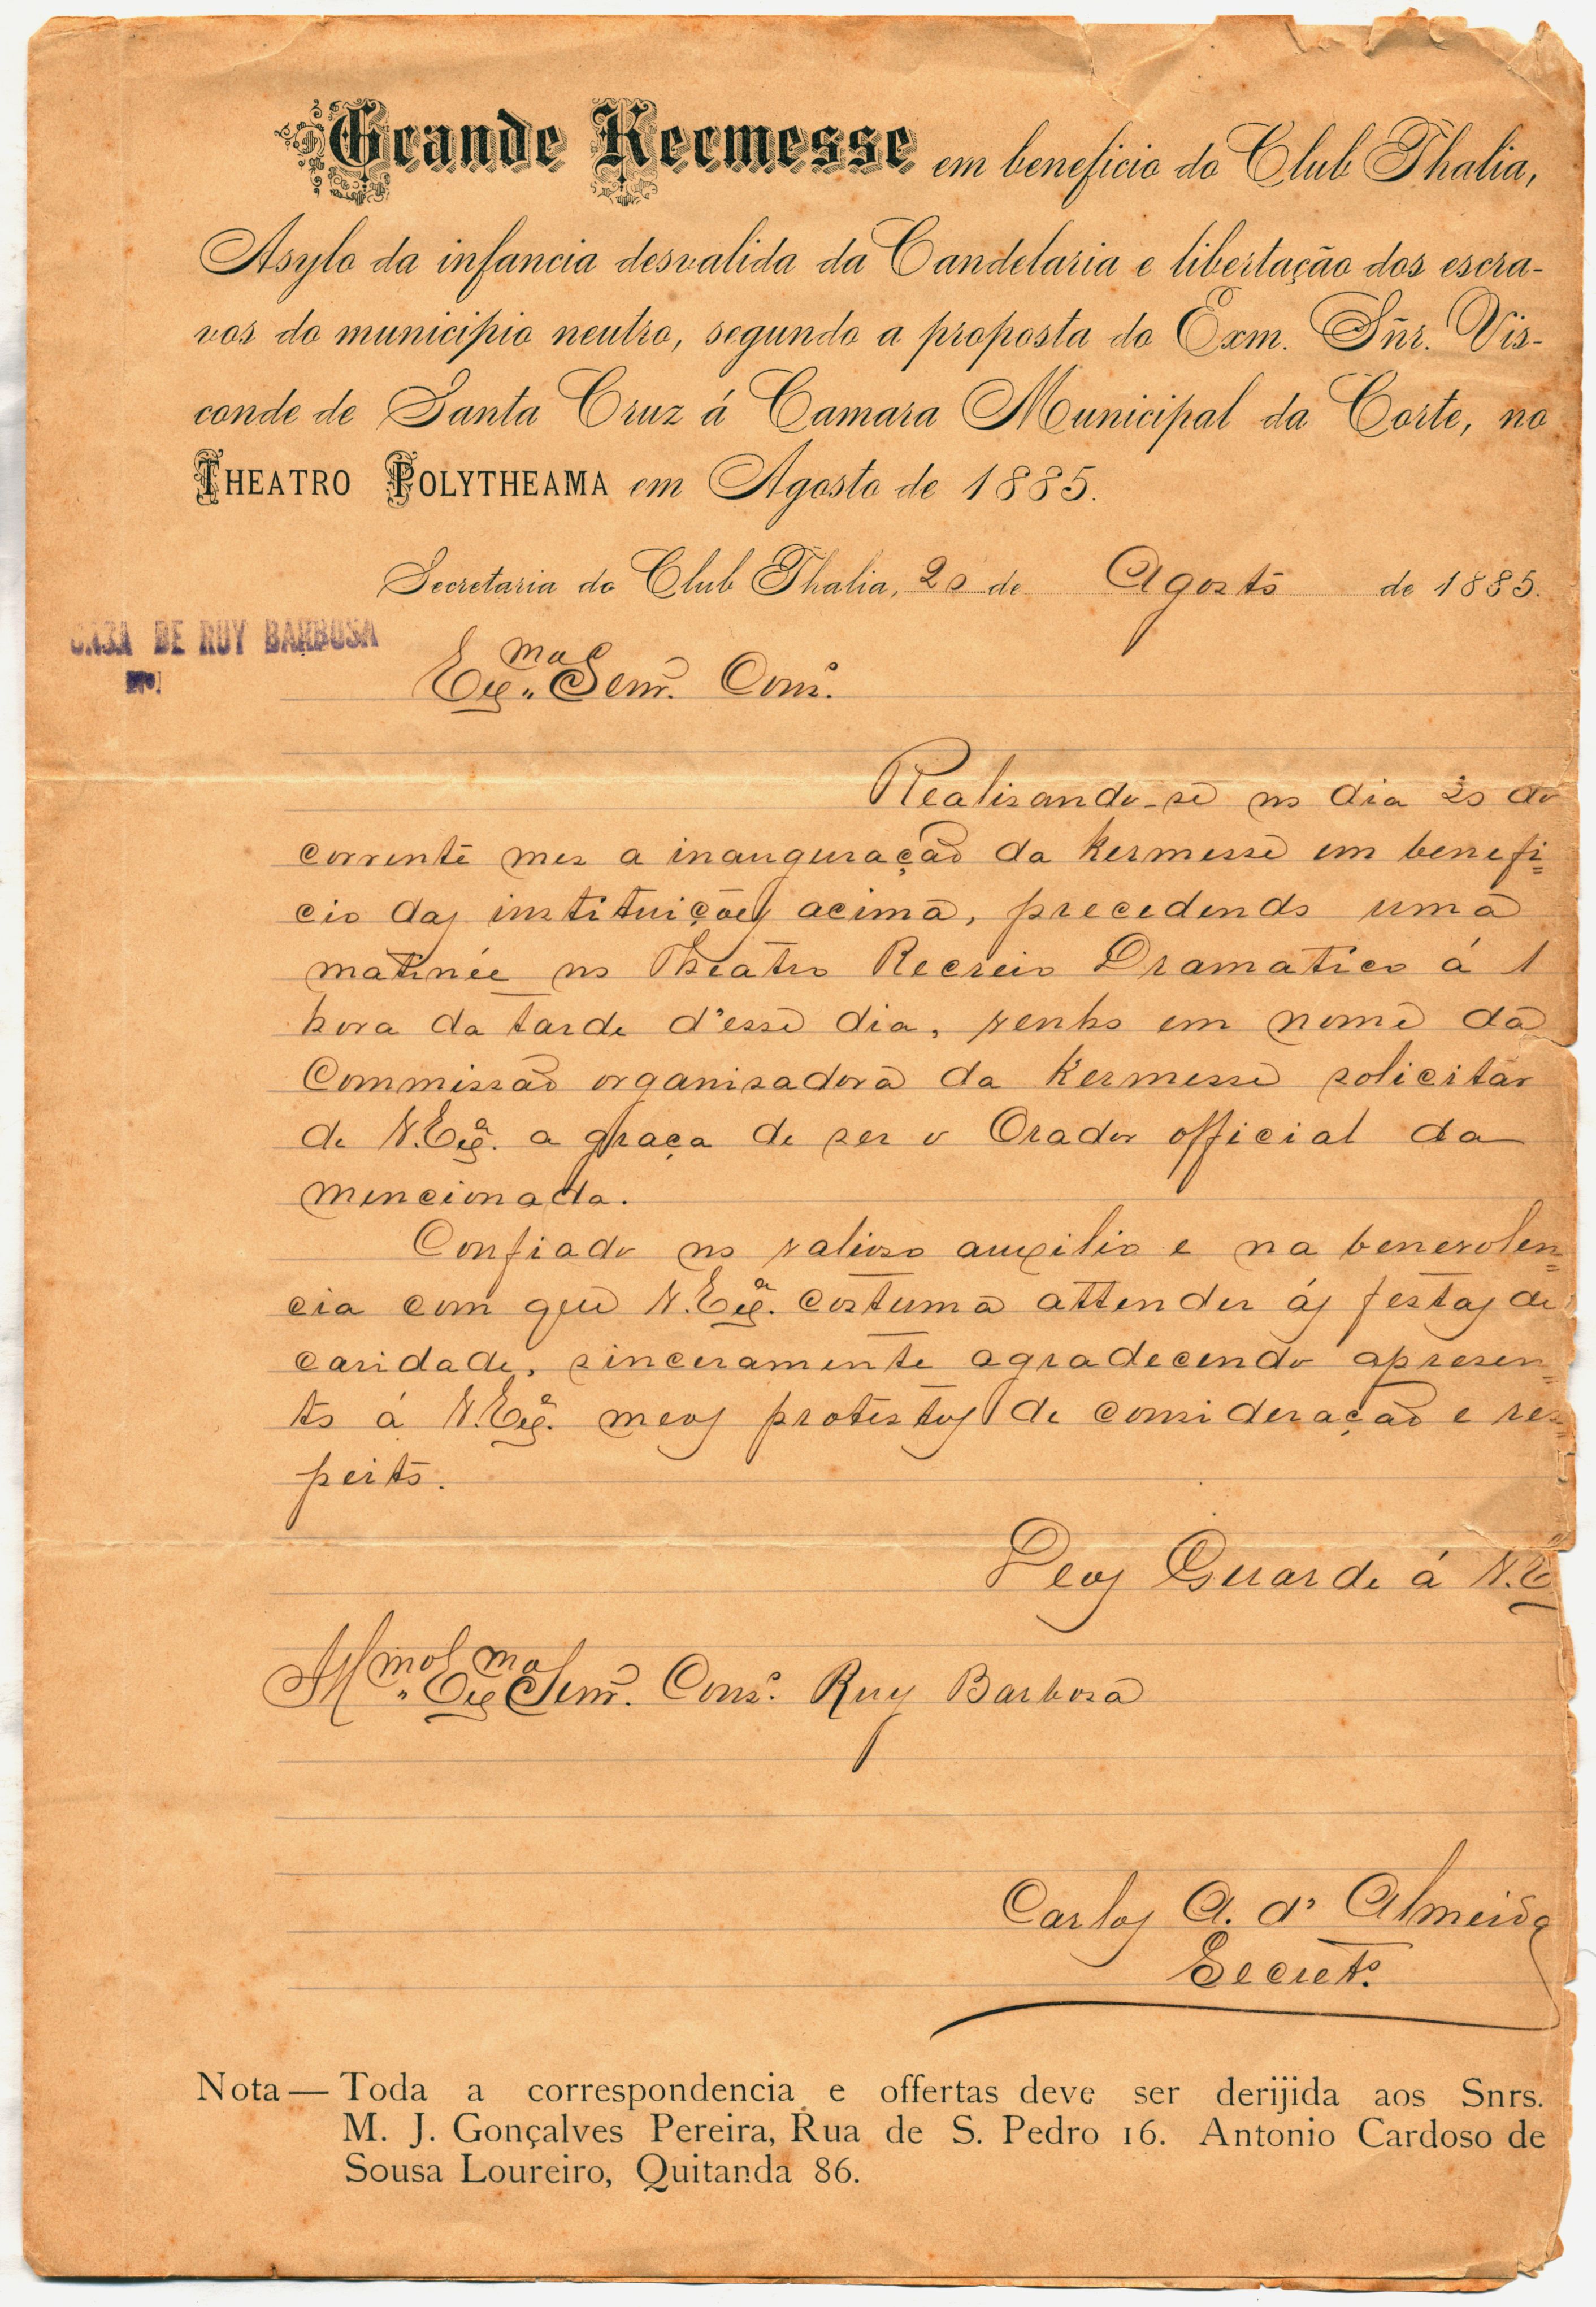 Grande Kermesse em beneficio do Club Thalia,
Asylo da infancia desvalida da Candelaria e libertação dos escra-
vos do municipio neutro, segundo a proposta do Exm. Sñr. Vis-
conde de Santa Cruz á Camara Municipal da Corte, no
THEATRO POLYTHEAMA em Agosto de 1885.
Secretaria do Club Thalia, 20 de Agosto de 1885.
CASA DE RUY BARBOSA
Nº
Exmo. Senr. Conso.
Realisando-se no dia do
corrente mes a inauguração da Kermesse em benefi=
cio das instituições acima, precedendo uma
matinée no Theatro Recreio Dramatico á 1
hora da tarde d'esse dia, venho em nome da
Commissão organisadora da Kermesse solicitar
de V. Exª. a graça de ser o Orador official da
mencionada.
Confiado no valioso auxilio e na benevolen=
cia com que V. Exª. costuma attender ás festas de
caridade, sinceramente agradecendo apresen=
to á V. Exª. meos protestos de consideração e res=
peito.
Deos Guarde á V. E
Illmo. Exmo. Senr. Conso. Ruy Barbosa
Carlos A. d' Almeida
Secreto.
Nota — Toda a correspondencia e offertas deve ser derijida aos Snrs.
M. J. Gonçalves Pereira, Rua de S. Pedro 16. Antonio Cardoso de
Sousa Loureiro, Quitanda 86.